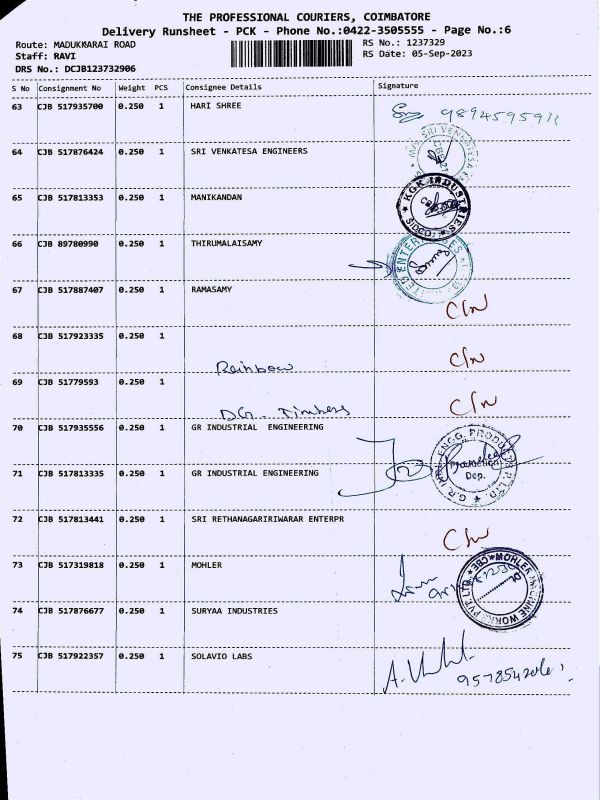 THE PROFESSIONAL COURIERS, COIMBATORE
Delivery Runsheet - PCK - Phone No.:0422-3505555 - Page No.:6
Route: MADUKKARAI ROAD
RS No.: 1237329
Staff: RAVI
RS Date: 05-Sep-2023
DRS No.: DCJB123732906
S No Consignment No Weight PCS Consignee Details Signature
63 CJB 517935700 0.250 1 HARI SHREE
64 CJB 517876424 0.250 1 SRI VENKATESA ENGINEERS
M/s SRI VENKATESA
65 CJB 517813353 0.250 1 MANIKANDAN
KGK INDUSTRIES
SIDCO
66 CJB 89780990 0.250 1 THIRUMALAISAMY
67 CJB 517887407 0.250 1 RAMASAMY C/N
68 CJB 517923335 0.250 1 C/N
Rainbow
69 CJB 51779593 0.250 1 C/N
DGr. Timbers
70 CJB 517935556 0.250 1 GR INDUSTRIAL ENGINEERING
ENGG. PRODUCTS
Production
Dep.
71 CJB 517813335 0.250 1 GR INDUSTRIAL ENGINEERING
72 CJB 517813441 0.250 1 SRI RETHANAGARIRIWARAR ENTERPR C/N
73 CJB 517319818 0.250 1 MOHLER
MOHLER MACHINE WORKS PVT. LTD. CBE
74 CJB 517876677 0.250 1 SURYAA INDUSTRIES
75 CJB 517922357 0.250 1 SOLAVIO LABS